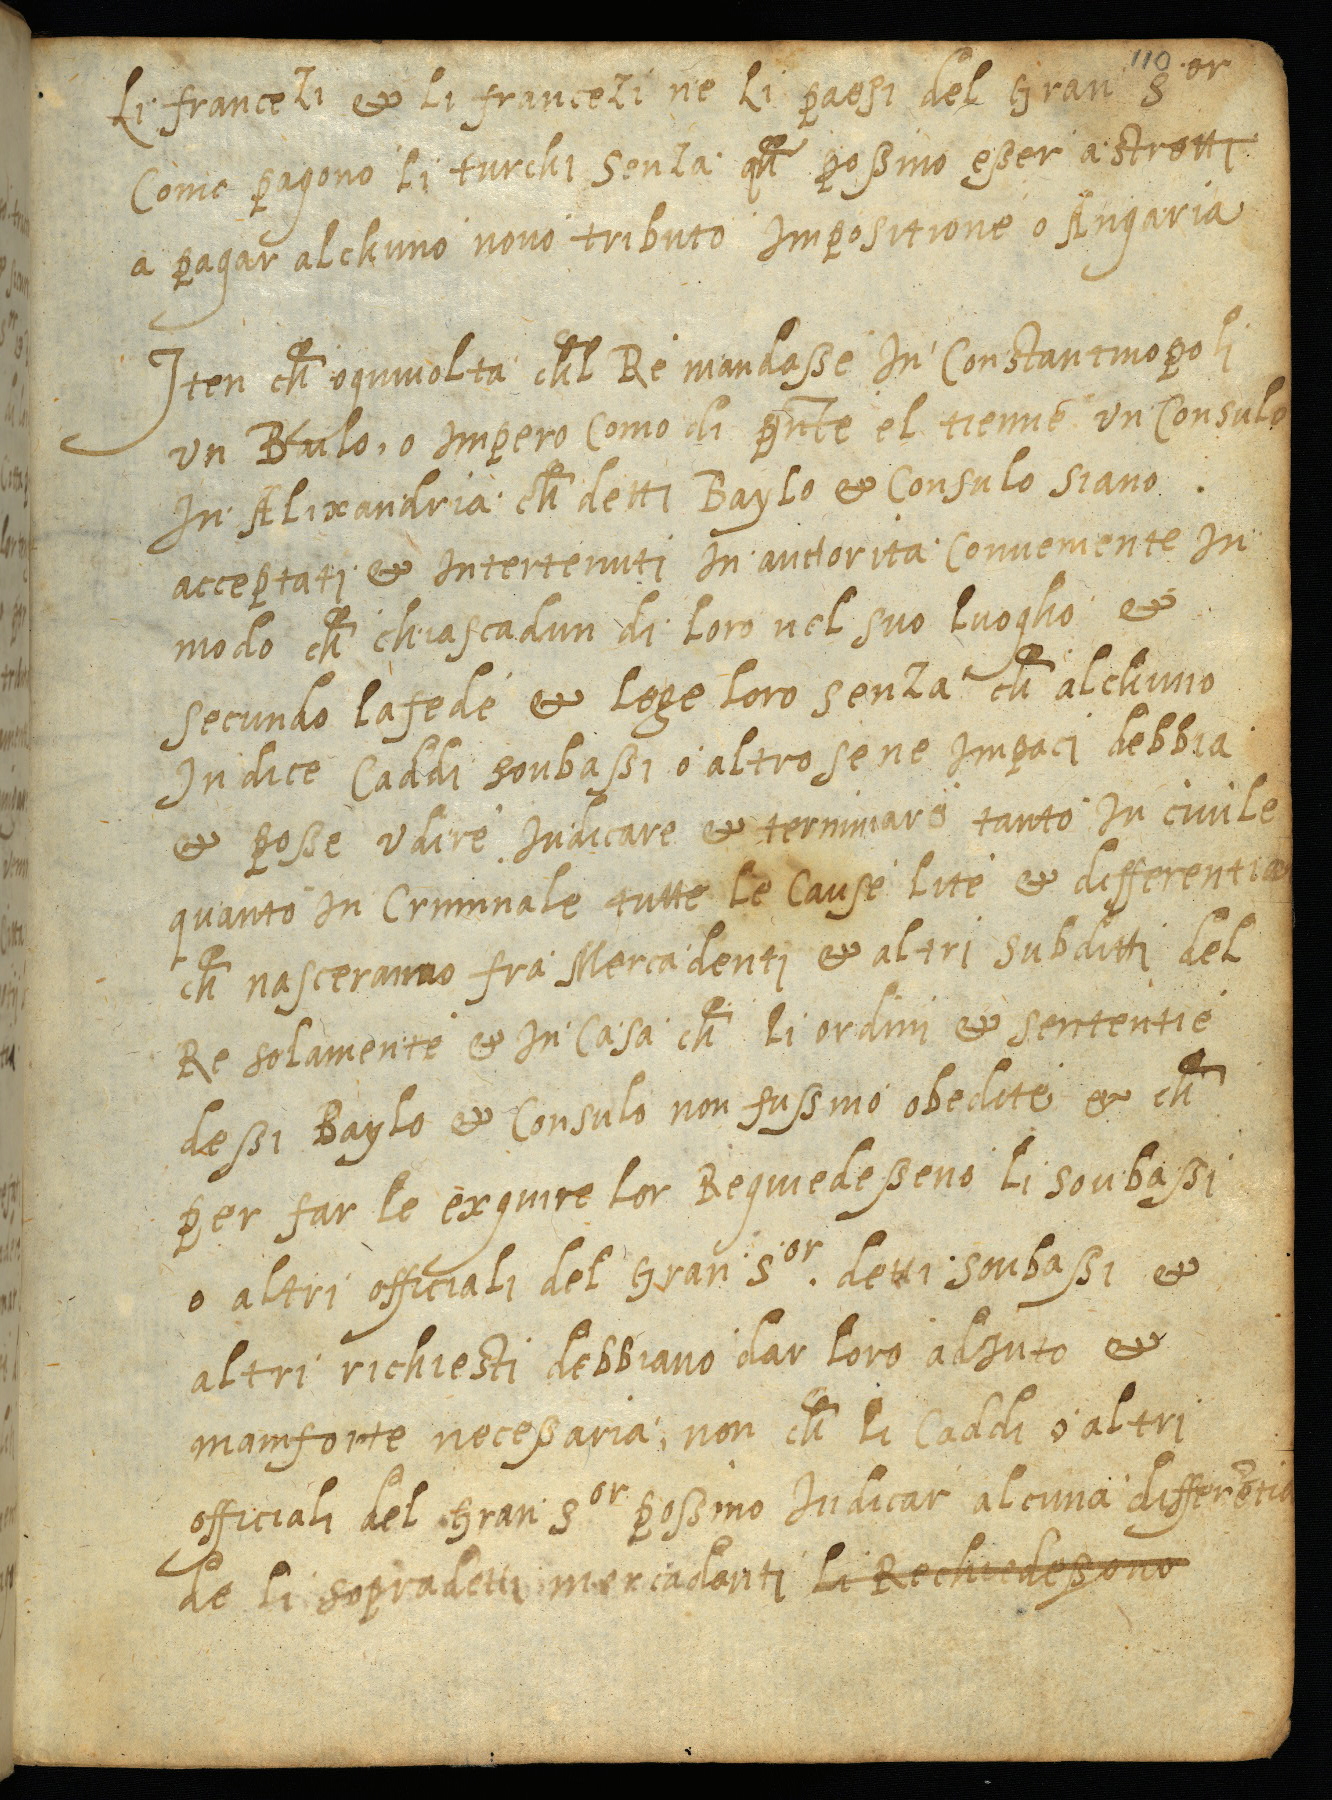 110
Li francezi & li francezi ne li paesi del gran S.or
Come pagono li turchi senza qñ possino esser astretti
a pagar alchuno novo tributo Impositione o Angaria
Iten ch ogniuolta chl Re mandasse In Constantinopoli
vn Baulo, o Impero Como di pñte el tienne vn Consulo
In Alixandria ch detti Baylo & Consulo siano .
acceptati & Intertenuti In auctorita Conueniente In
modo ch chiascadun di loro nel suo luogho &
secundo la fede & lege loro senza ch alchuno
Iudice Caddi soubassi o altro se ne Impaci debbia
& posse vdire Iudicare & terminare tanto In ciuile
quanto In Criminale tutte le Cause lite & differentia
ch nasceranno fra Mercadenti & altri subditti del
Re solamente & In Casa ch li ordini & sententie
dessi Baylo & Consulo non fussino obedite & ch
per far le exquire lor Requiedesseno li soubassi
o altri officiali del gran S.or. detti soubassi &
altri richiesti debbiano dar loro adiuto &
mamforte necessaria, non ch li Caddi o altri
officiali del gran S.or possino Iudicar alcuna differētia
de li sopradetti mercadanti li Rechiedessono